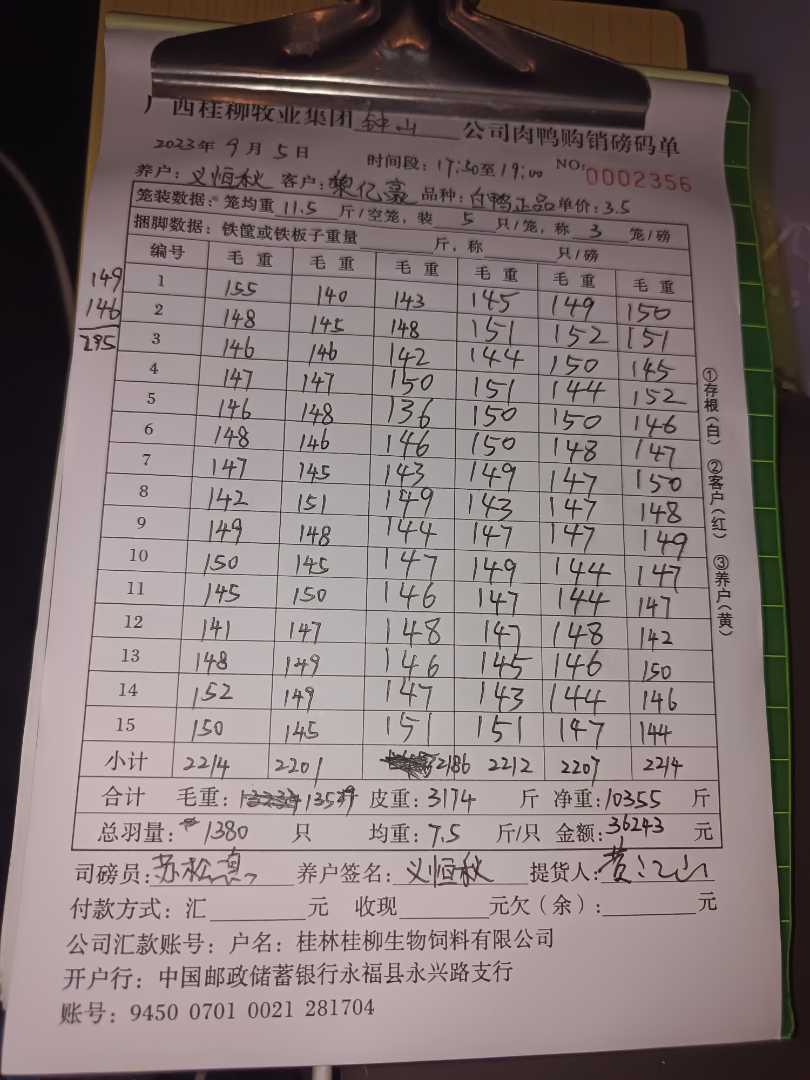 广西桂柳牧业集团钟山公司肉鸭购销磅码单
2023年9月5日 时间段：17:30至19:00 NO：0002356
养户：义恒秋 客户：黎亿嘉 品种：白鸭正品 单价：3.5
笼装数据：笼均重11.5斤/空笼，装5只/笼，称3笼/磅
捆脚数据：铁筐或铁板子重量 斤，称 只/磅
编号 毛重 毛重 毛重 毛重 毛重 毛重
1 155 140 143 145 149 150
2 148 145 148 151 152 151
3 146 146 142 144 150 145
4 147 147 150 151 144 152
5 146 148 136 150 150 146
6 148 146 146 150 148 147
7 147 145 143 149 147 150
8 142 151 149 143 147 148
9 149 148 144 147 147 149
10 150 145 147 149 144 147
11 145 150 146 147 144 147
12 141 147 148 147 148 142
13 148 149 146 145 146 150
14 152 149 147 143 144 146
15 150 145 151 151 147 144
小计 2214 2201 2186 2212 2207 2214
合计 毛重：13529 皮重：3174 斤 净重：10355 斤
总羽量：1380 只 均重：7.5 斤/只 金额：36243 元
司磅员：苏松 养户签名：义恒秋 提货人：黄江山
付款方式：汇 元 收现 元欠（余）： 元
公司汇款账号：户名：桂林桂柳生物饲料有限公司
开户行：中国邮政储蓄银行永福县永兴路支行
账号：9450 0701 0021 281704
149
146
295
①存根（白） ②客户（红） ③养户（黄）